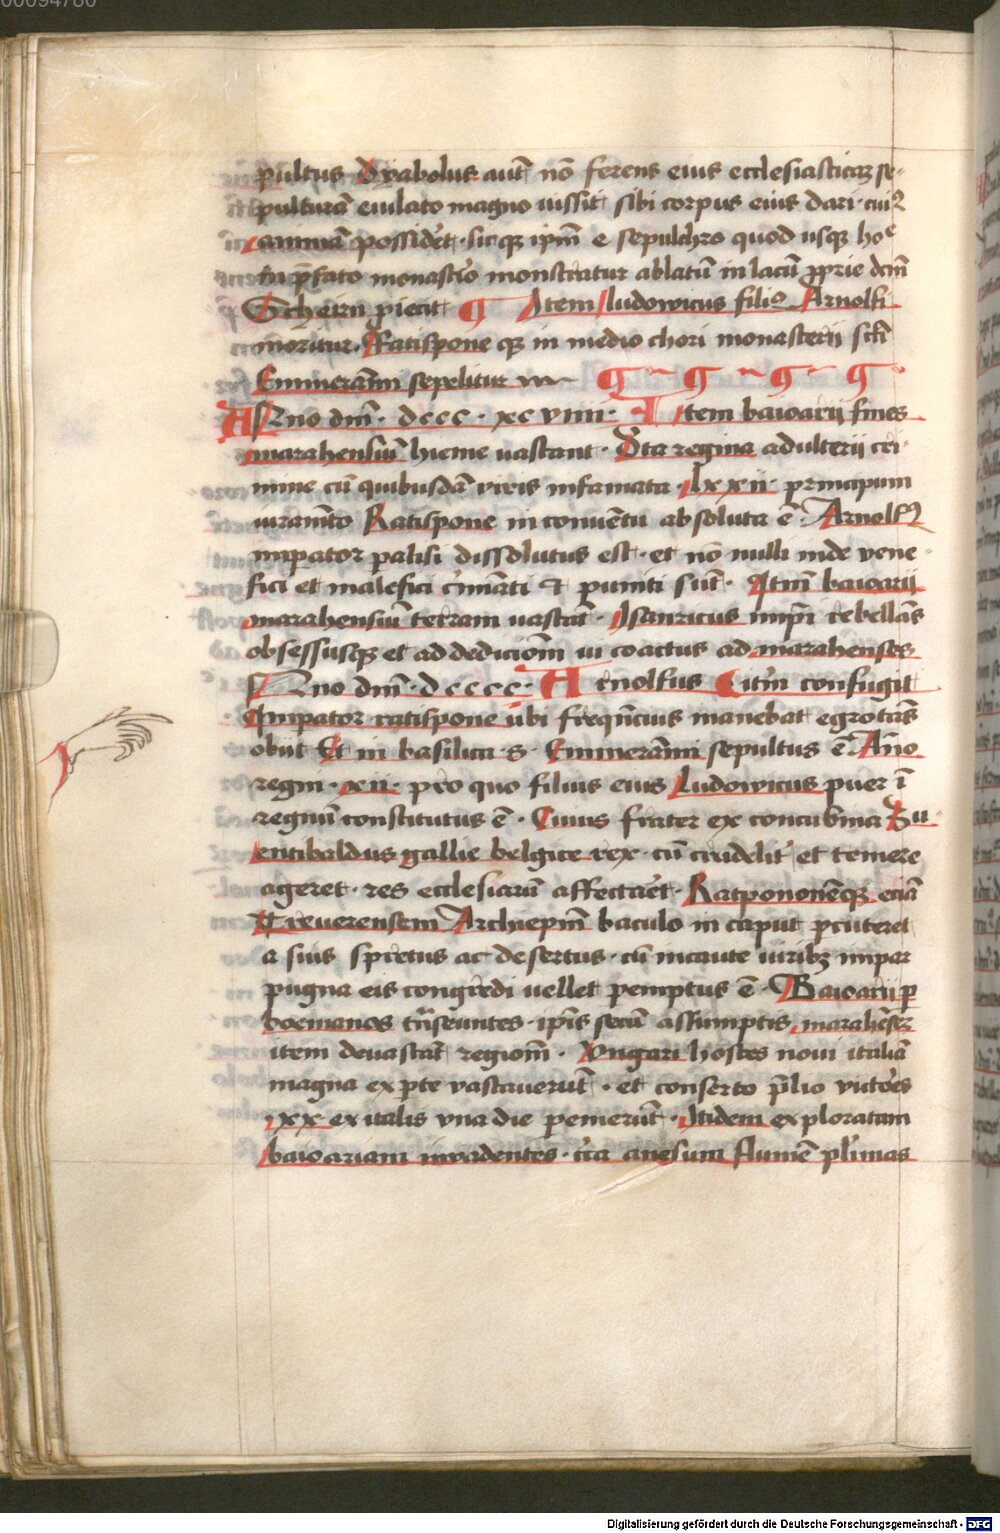 00094780
pultus Dyabolus aut̄ nō ferens eius ecclesiasticaꝫ se-
pulturā eiulato magno iussit sibi corpus eius dari · cuiꝰ
animā possidet · sicqꝫ ip̄m e sepulchro quod usqꝫ hoᵉ
in p̄fato monastɛ̄io monstratur ablatū in lacū ꝓprie dc̄m
Scheirn ꝓiecit ¶ Item ludowicus filiꝰ Arnolfi
moritur · Ratispone qꝫ in medio chori monasterii sc̄ti
Emmerāmi sepelitur
Anno dm̄ · dccc · xc viiii · Item baioarij fines
marahensiū hieme uastant · Vta regina adulterij cri-
mine cū quibusdā viris infamata · lxxii · principum
iuram̄to Ratispone in conuētu absoluta ē · Arnolfꝰ
impator palisi dissolutus est · et nō nulli inde vene-
fici et malefici c̄māti et puniti sūt · Itm̄ baioarij
marahensiū terram uastāt · Isanricus imp̄i rebellās
obsessusqꝫ et ad dedicionē ui coactus ad marahenses
Anno dm̄ · dcccc · Arnolfus itm̄ confugit
Impator ratispone ubi freqn̄cius manebat egrotās
obiit Et in basilica · s · Emmerāmi sepultus ē Año
regni · xii · pro quo filius eius Ludowicus puer ī
regnū constitutus ē · Cuius frater ex concubina Zu
entibaldus gallie belgice rex · cū crudelit̄ et temere
ageret · res ecclesiarū affectaɛ̄t · Ratpononēqꝫ eciā
Treuerensem Archiep̄m baculo in caput ꝑcuteret
a suis spretus ac desertus · cū incaute uiribꝫ impar
pugna eis congredi uellet pemptus ē · Baioarij ꝑ
boemanos trn̄seuntes · ip̄is secū assumptis marahēseꝫ
item deuastāt regionē · Vngari hostes noui italiā
magna ex ꝑte vastauerūt · et conserto p̄lio victōes
xx ex italis vna die pemerūt · Itidem exploratam
baioariam inuadentes · cc̄a anesum flumē pl̄imas
Digitalisierung gefördert durch die Deutsche Forschungsgemeinschaft - DFG